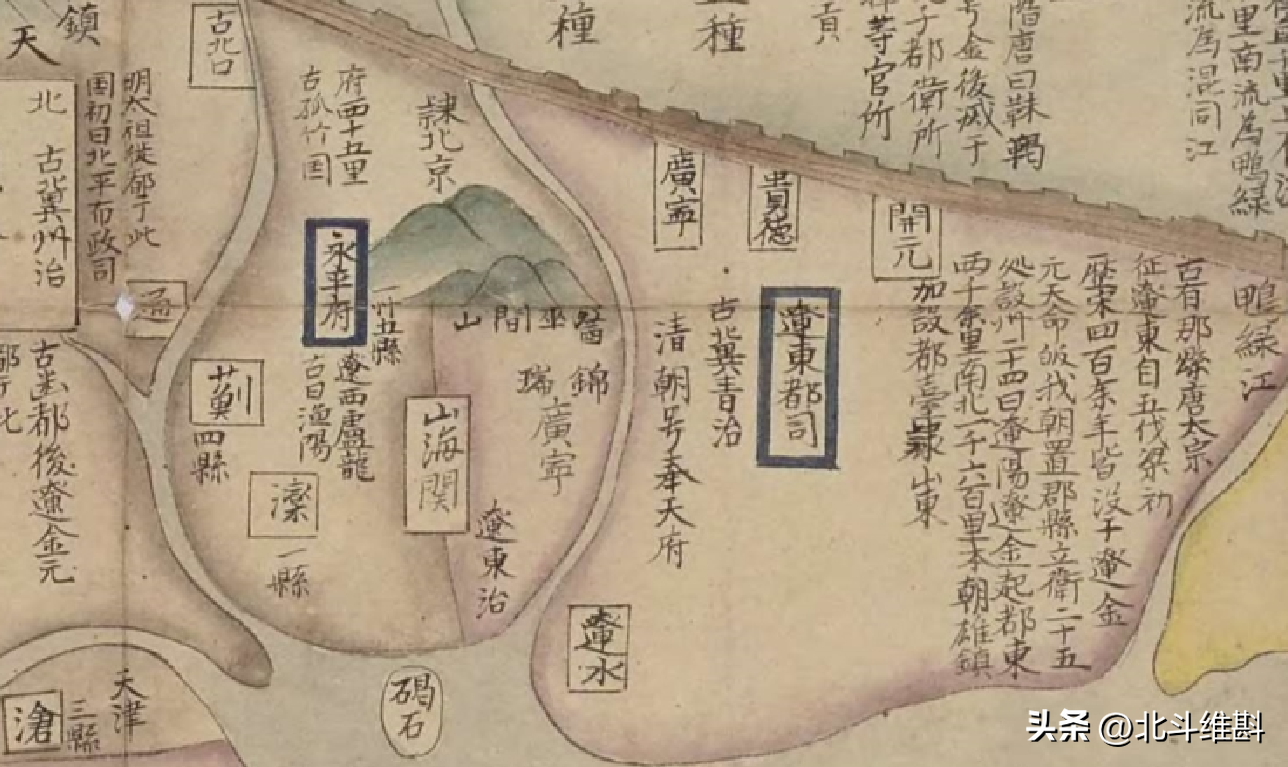 階唐曰靺鞨
号金後滅于
子都衛所
等官所
貢
種
種
里南流為鴨緑
流為混同江
鴨緑江
古有那縣唐太宗
征遼東自五伐梁初
歷宋四百余年皆没于遼金
元天命皈我朝置郡縣立衛二十五
処設州二十四曰遼陽遼金起都東
西千余里南北一千六百里本朝雄鎮
加設都臺隸山東
開元
貴德
廣寧
遼東都司
古冀青治
清朝号奉天府
遼水
隸北京
醫巫閭山
錦
瑞
廣寧
遼東治
山海関
府西十五里
古孤竹国
永平府
一州五縣
遼西盧龍
古曰漁陽
薊
四縣
灤
一縣
碣石
古北口
鎮
天
明太祖徙都于此
国初曰北平布政司
北
古冀州治
古幽都後遼金元
天津
三縣
滄
头条 @北斗维斟